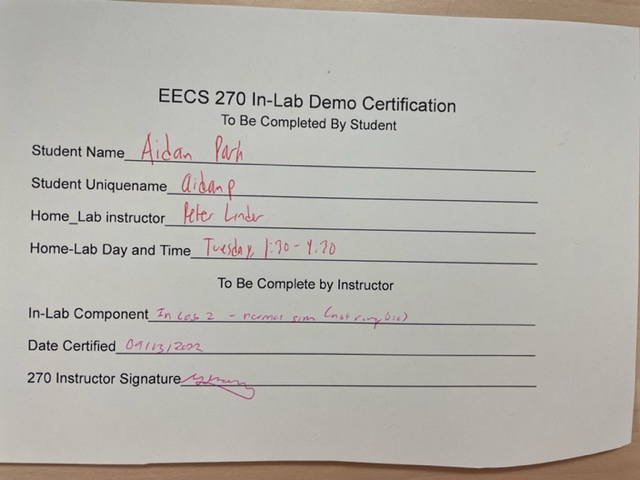 EECS 270 In-Lab Demo Certification
To Be Completed By Student
Student Name Aidan Park
Student Uniquename aidanp
Home_Lab instructor Peter Linder
Home-Lab Day and Time Tuesday, 1:30-4:30
To Be Complete by Instructor
In-Lab Component In Lab 2 - normal sim (not
Date Certified 09/13/2022
270 Instructor Signature